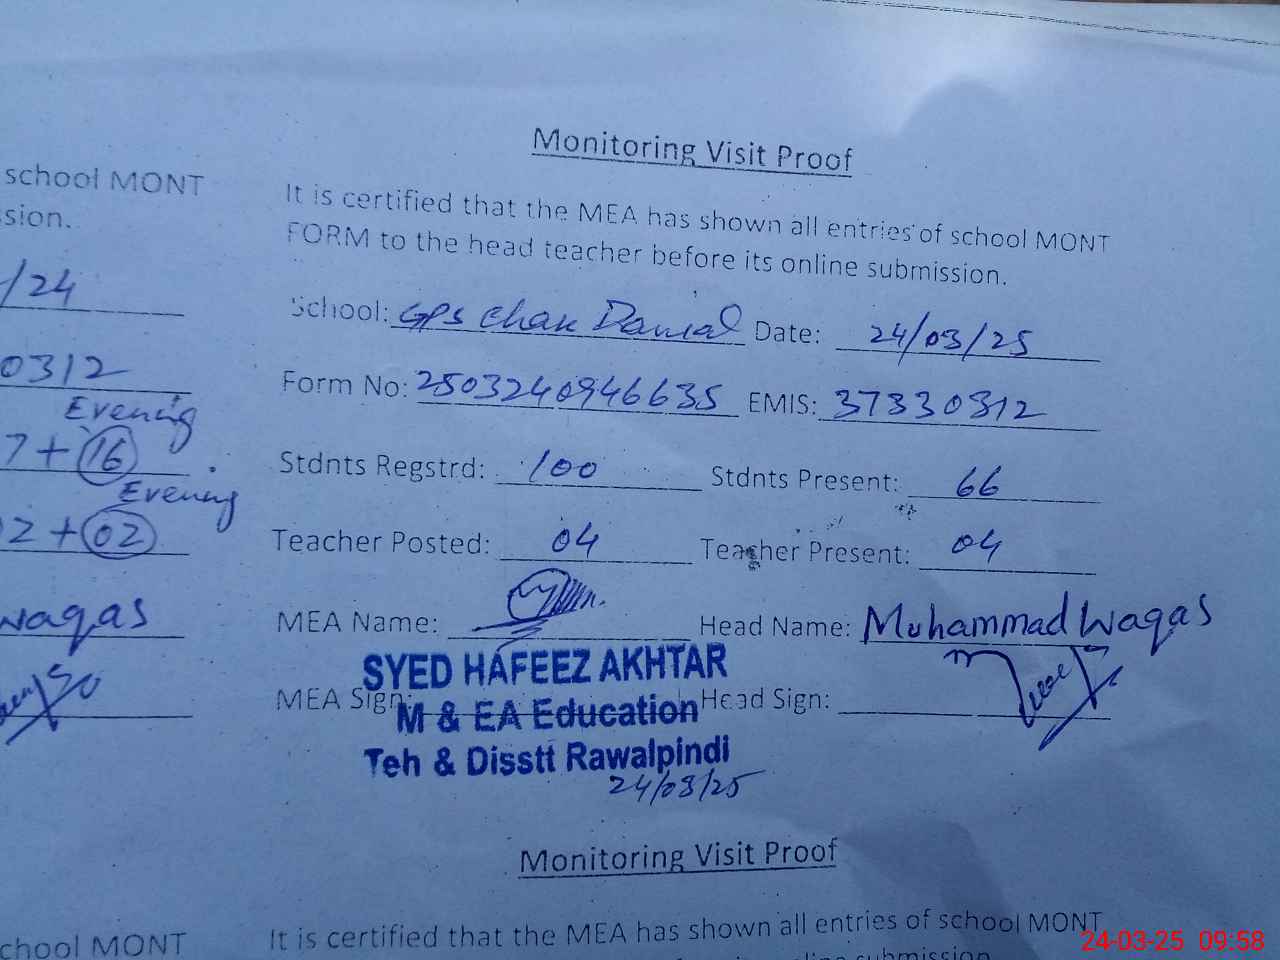 school MONT
sion.
/24
0312
Evening
7 + 16
Evening
2 + 02
waqas
Monitoring Visit Proof
It is certified that the MEA has shown all entries of school MONT
FORM to the head teacher before its online submission.
School: GPS Chak Danial Date: 24/03/25
Form No: 2503240946635 EMIS: 37330312
Stdnts Regstrd: 100 Stdnts Present: 66
Teacher Posted: 04 Teacher Present: 04
MEA Name: Head Name: Muhammad Waqas
SYED HAFEEZ AKHTAR
MEA Sign: M & EA Education Head Sign:
Teh & Disstt Rawalpindi
24/03/25
Monitoring Visit Proof
chool MONT
It is certified that the MEA has shown all entries of school MONT
submission.
24-03-25 09:58